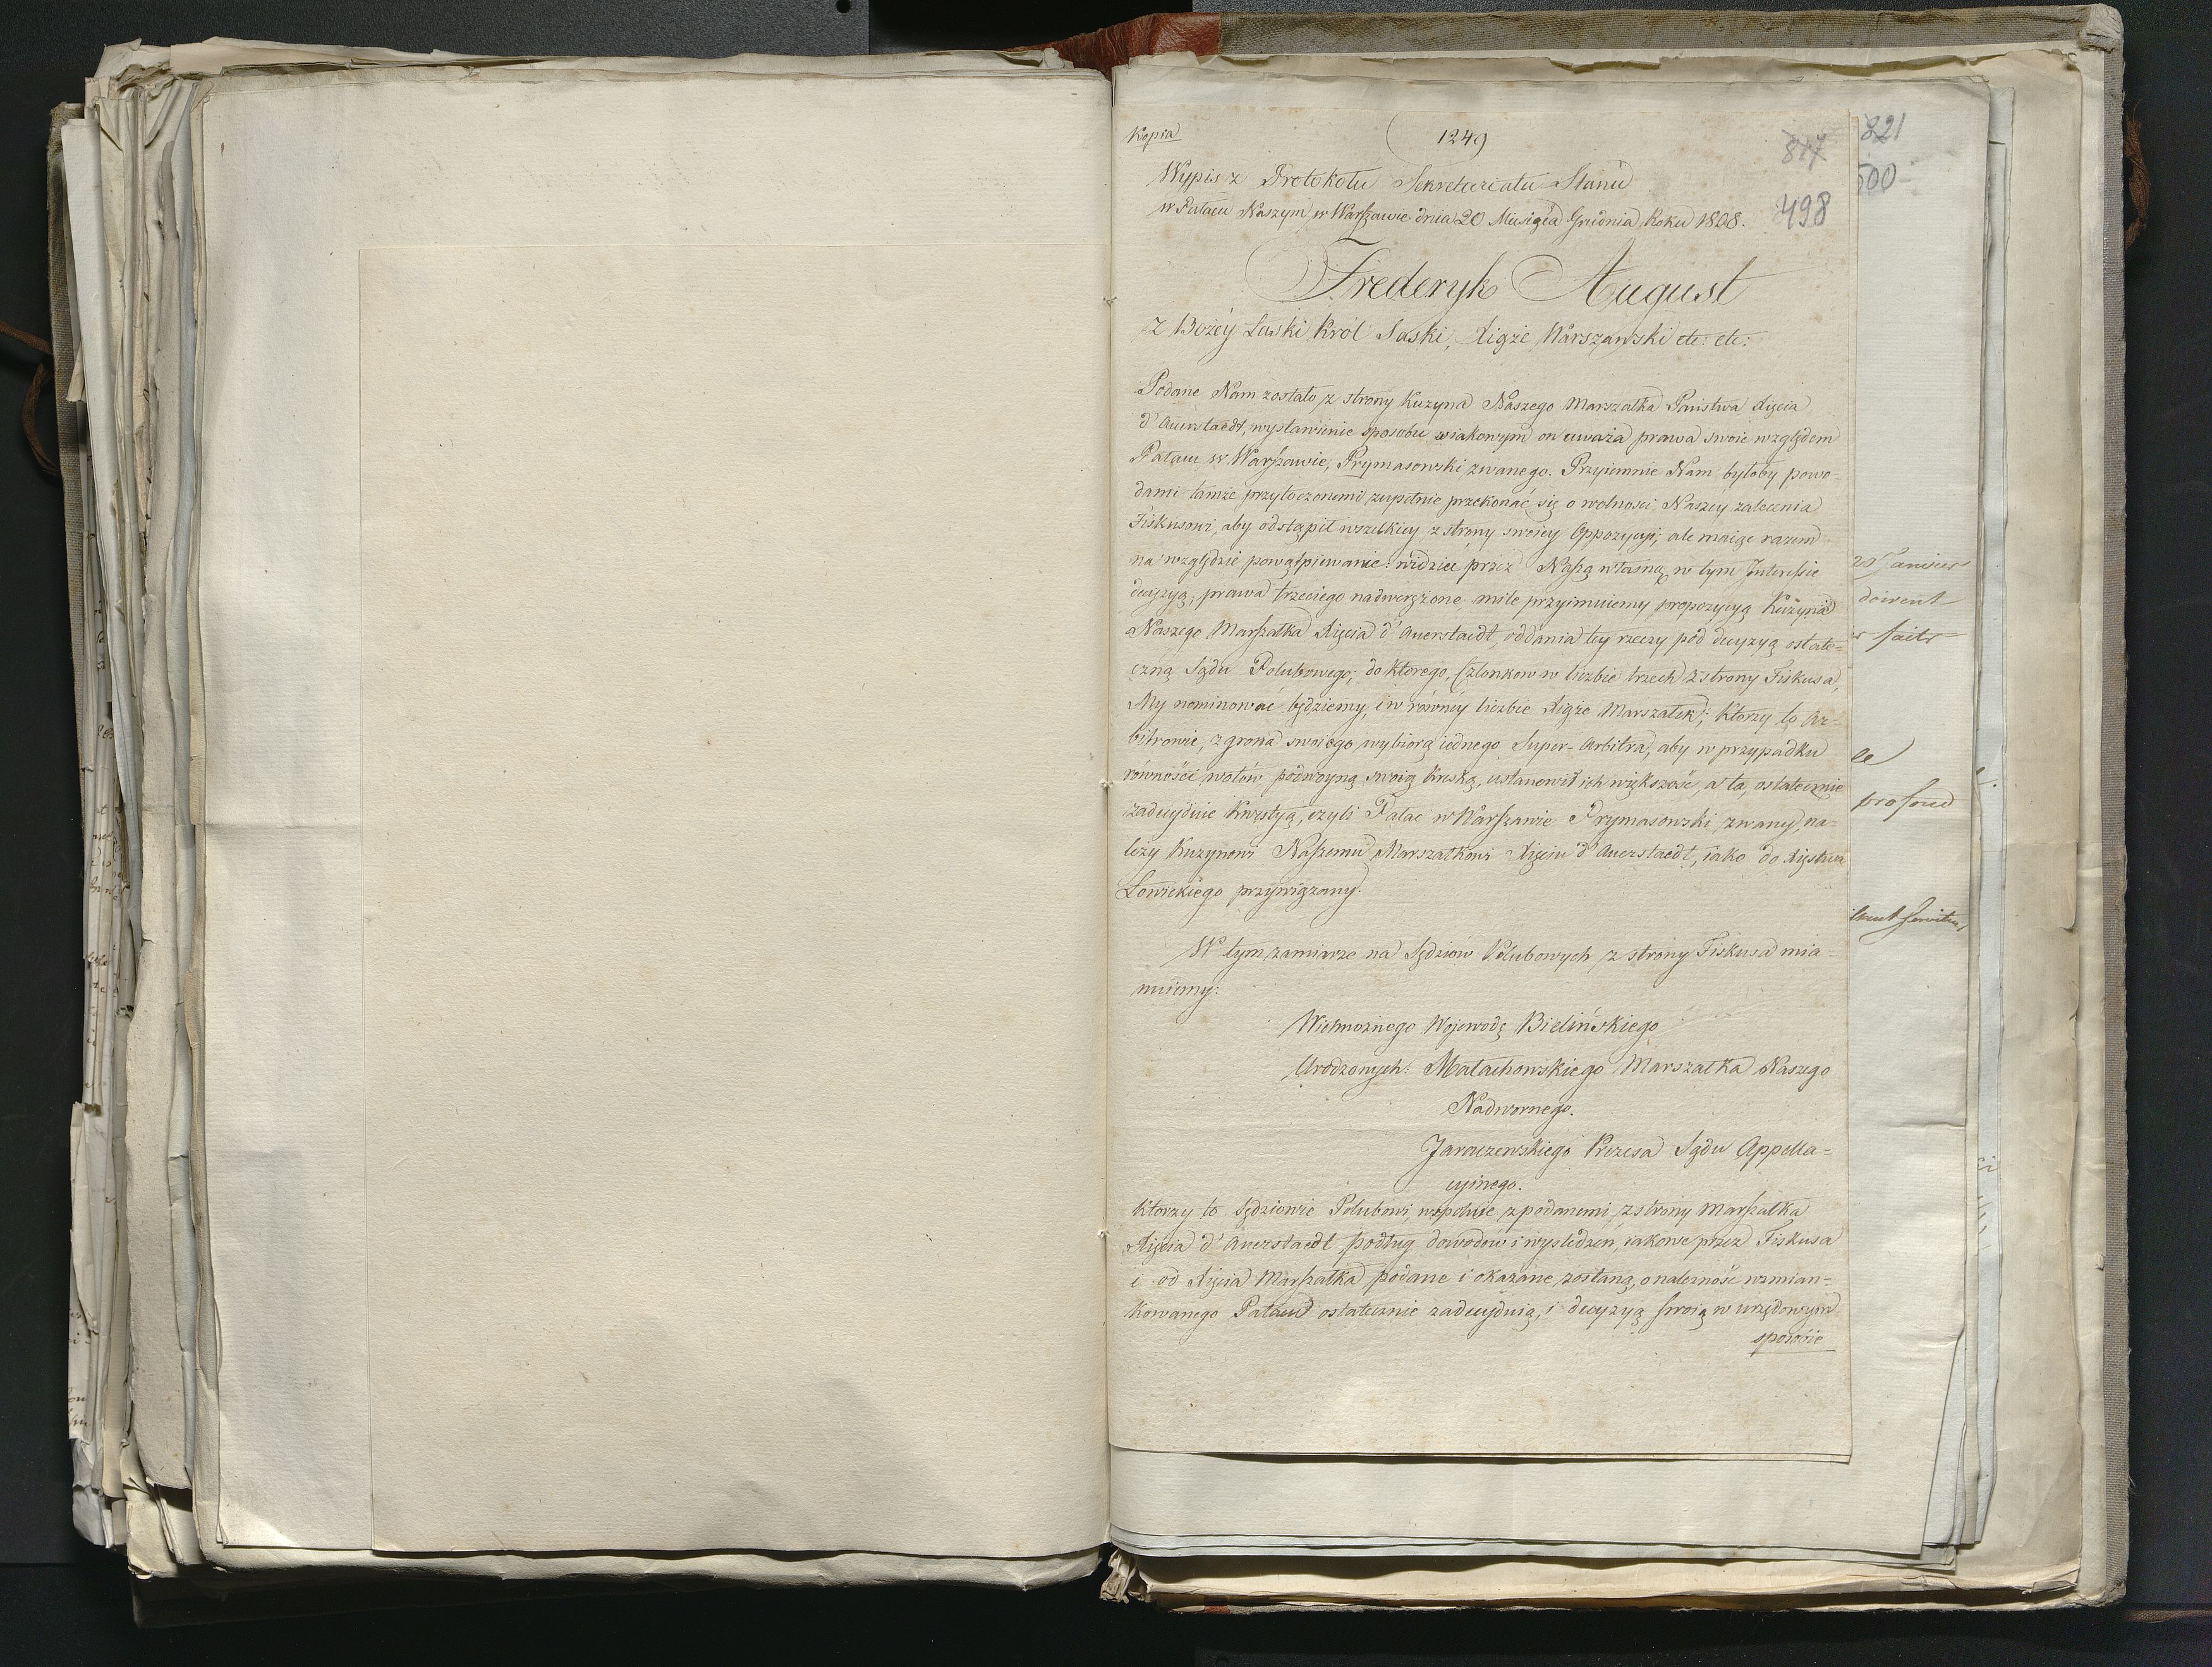 Kopia
1249
817
821
500
Wypis z Protokołu Sekretariatu Stanu
w Pałacu Naszym w Warszawie dnia 20 Miesiąca Grudnia Roku 1808.
498
Frederyk August
z Bożey Łaski Król Saski, Xiąże Warszawski etc: etc:
Podane Nam zostało z strony Kuzyna Naszego Marszałka Państwa Xięcia
d'Auerstaedt, wystawienie sposobu w iakowym on uważa prawa swoie względem
Pałacu w Warszawie, Prymasowski zwanego. Przyiemnie Nam byłoby powo-
dami tamże przytoczonemi zupełnie przekonać się o wolności Naszey zalecenia
Fiskusowi, aby odstąpił wszelkiey z strony swoiey Oppozycyi; ale maiąc razem
na względzie powątpiewanie: widzieć przez Naszą własną w tym Interessie
decyzyą, prawa trzeciego nadwerężone, mile przyimuiemy propozycyą Kuzyna
Naszego Marszałka Xięcia d'Auerstaedt, oddania tey rzeczy pod decyzyą ostate-
czną Sądu Polubowego; do którego, Członkow w liczbie trzech z strony Fiskusa,
My nominować będziemy, i w równey liczbie Xiąże Marszałek; Którzy to Ar-
bitrowie, z grona swoiego wybiorą iednego Super-Arbitra, aby w przypadku
równości wotów podwoyną swoią kreską, ustanowił ich większość, a ta, ostatecznie
zadecyduie Kwestyą, czyli Pałac w Warszawie Prymasowski zwany, na-
leży Kuzynowi Naszemu Marszałkowi Xięciu d'Auerstaedt, iako do Xięstwa
Łowickiego przywiązany.
W tym zamiarze na Sędziów Polubowych z strony Fiskusa mia-
nuiemy:
Wielmożnego Wojewodę Bielińskiego
Urodzonych: Małachowskiego Marszałka Naszego
Nadwornego.
Jaraczewskiego Prezesa Sądu Appella-
cyinego.
Którzy to Sędziowie Polubowi, wspolnie z podanemi z strony Marszałka
Xięcia d'Auerstaedt podług dowodów i wyśledzeń, iakowe przez Fiskusa
i od Xięcia Marszałka podane i okazane zostaną, o należność wzmian-
kowanego Pałacu ostatecznie zadecyduią, i decyzyą swoią w urzędowym
sposobie
doivent
faits